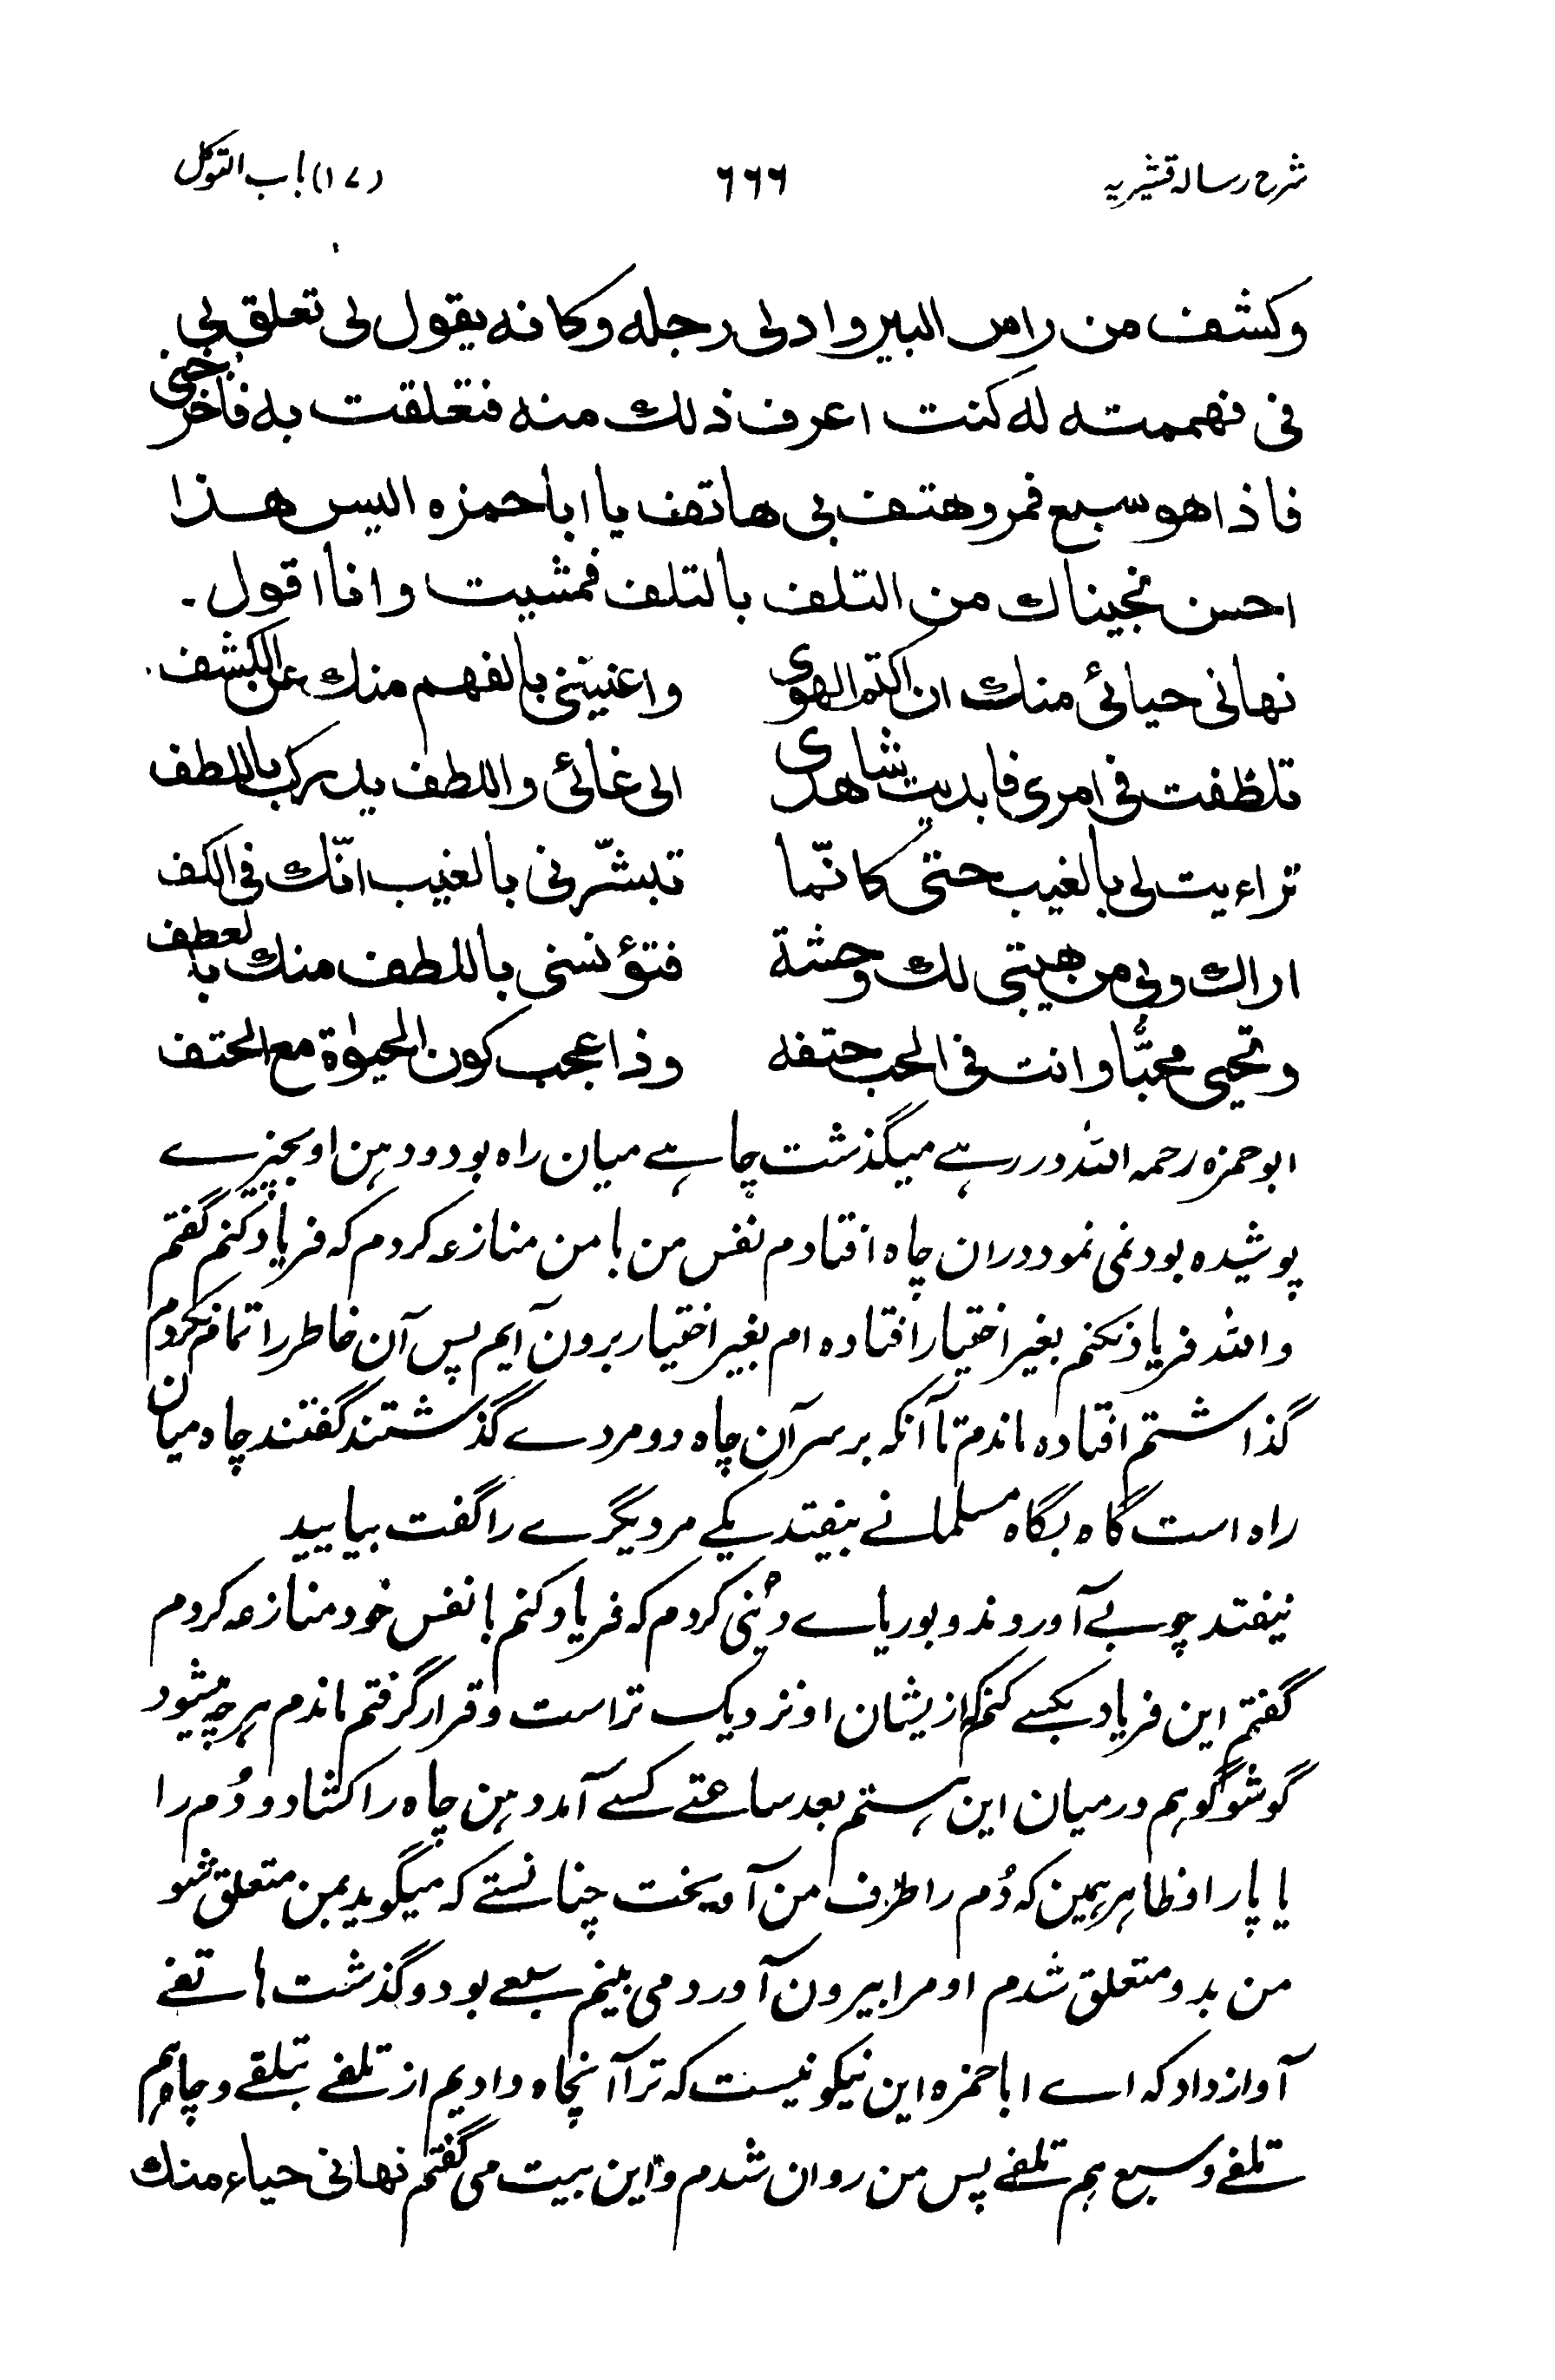 شرح رسالہ قشیریہ ۶۶۶ (۱۷) باب التوکل
وکشف من راس البیر وادلی رجله وکانه یقول لی تعلق بی
فی نهممته له کنت اعرف ذلك منه فتعلقت به فاخرجنی
فاذا هو سبع فمر وهتف بی هاتف یا ابا حمزه الیس هذا
احسن نجیناك من التلف بالتلف فمشیت وانا اقول۔
نهانی حیائی منك ان اکتم الهوی واغنیتنی بالفهم منك عن الکشف
تلطفت فی امری فابدیت شاهدی الی غائی واللطف یدرك باللطف
تراءیت لی بالغیب حتی کانّما تبشّرنی بالغیب انّك فی الکف
اراك وبی من هیبتی لك وحشة فتؤنسنی باللطف منك بالعطف
وتحیی محبًّا وانت فی الحب حتفه وذا عجب کون الحیوٰة مع الحتف
ابوحمزه رحمه اللہ در رہے میگذشت چاہے میان راه بود و دہن او بچیزے
پوشیده بود نمی نمود دران چاه افتادم نفس من با من منازعه کردم که فریاد کنم گفتم
واللہ فریاد نکنم بغیر اختیار افتاده ام بغیر اختیار برون آیم پس آن خاطر را تمام نکردم
گذاشتم افتاده ماندم تا آنکه بر سر آن چاه دو مردے گذشتند گفتند چاه میان
راه است گاه بگاه مسلمانے بیفتد یکے مر دیگرے را گفت بیایید
نیفتد چوبے آوردند و بوریاے دنئی کردم که فریاد کنم با نفس خود منازعه کردم
گفتم این فریاد بکسے کنم که ازیشان او نزدیک تر است و قرار گرفتم ماندم ہرچه میشود
گو شو گوہم درمیان این ہستم بعد ساعتے کسے آمد دہن چاه را کشاد و دُم را
یا پا را و ظاہر ہمین که دُم را طرف من آویخت چنانستے که میگوید بمن متعلق شو
من بدو متعلق شدم او مرا بیرون آورد می بینم سبعے بود و گذشت ہاتفے
آواز داد که اے اباحمزه این نیکو نیست که ترا آنجاه دادیم از تلفے بتلقے و چاه ہم
تلفے و سبع ہم تلفے پس من روان شدم و این بیت می گفتم نهانی حیاء منك